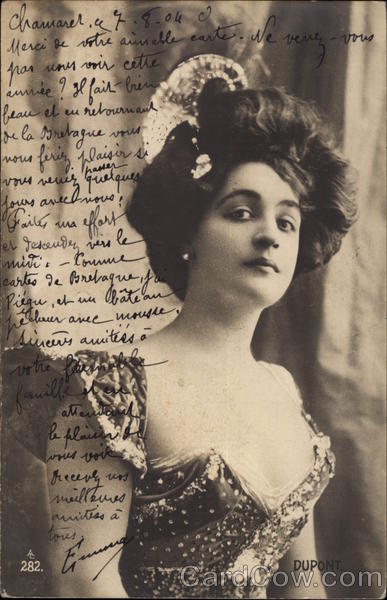 Chamaret, le 7.8.04
Merci de votre aimable carte. Ne venez-vous
pas nous voir cette
année? Il fait bien
beau et en retournant
de la Bretagne vous
nous feriez plaisir si
vous veniez passer quelques
jours avec nous.
Faites un effort
et descendez vers le
midi. - Comme
cartes de Bretagne, j'ai
, et un bâteau
pêcheur avec mousse.
Sincères amitiés à
votre
famille et en
attendant
le plaisir de
vous voir
recevez nos
meilleures
amitiés à
tous.
282.
DUPONT.
CardCow.com